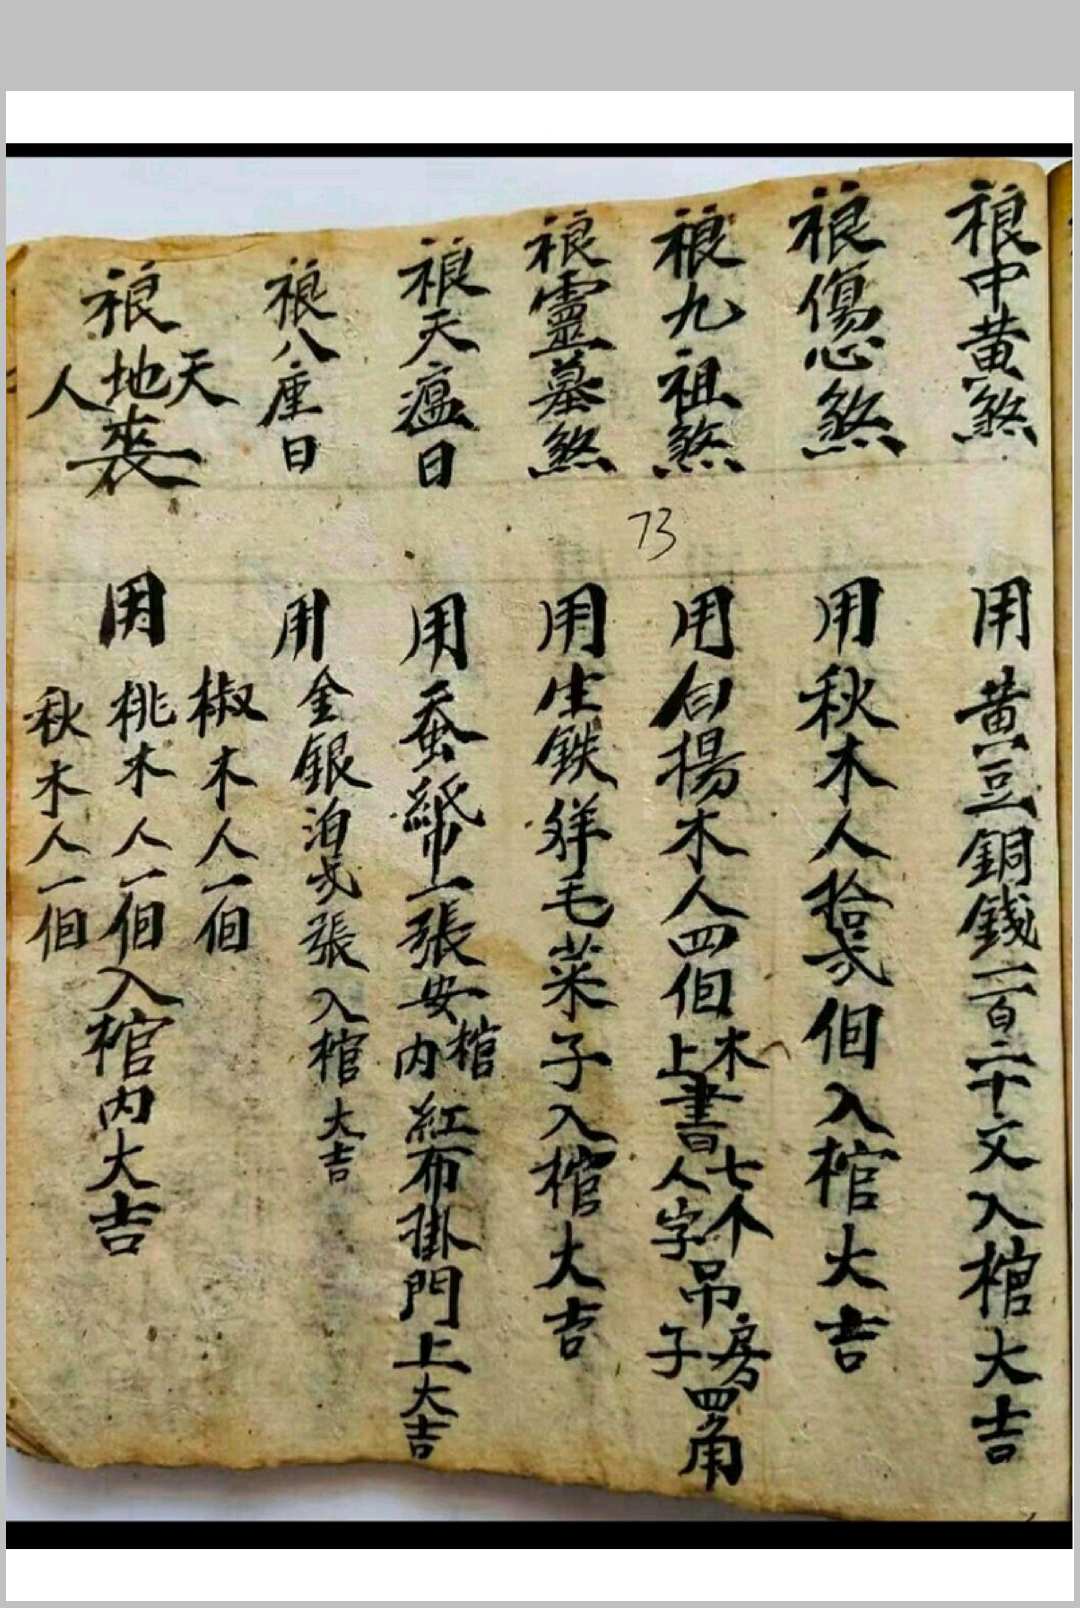 裉中黄煞 用黄豆銅錢一百二十文入棺大吉
裉傷心煞 用秋木人拾弍個入棺大吉
裉九祖煞 用白楊木人四個木上書七个人字吊房子四角
裉靈墓煞 用生鉄羊毛菜子入棺大吉
裉天瘟日 用蚕紙一張安棺内紅布掛門上大吉
裉八座日 用金銀泊弍張入棺大吉
裉天地人喪 用椒木人一個桃木人一個秋木人一個入棺内大吉
73